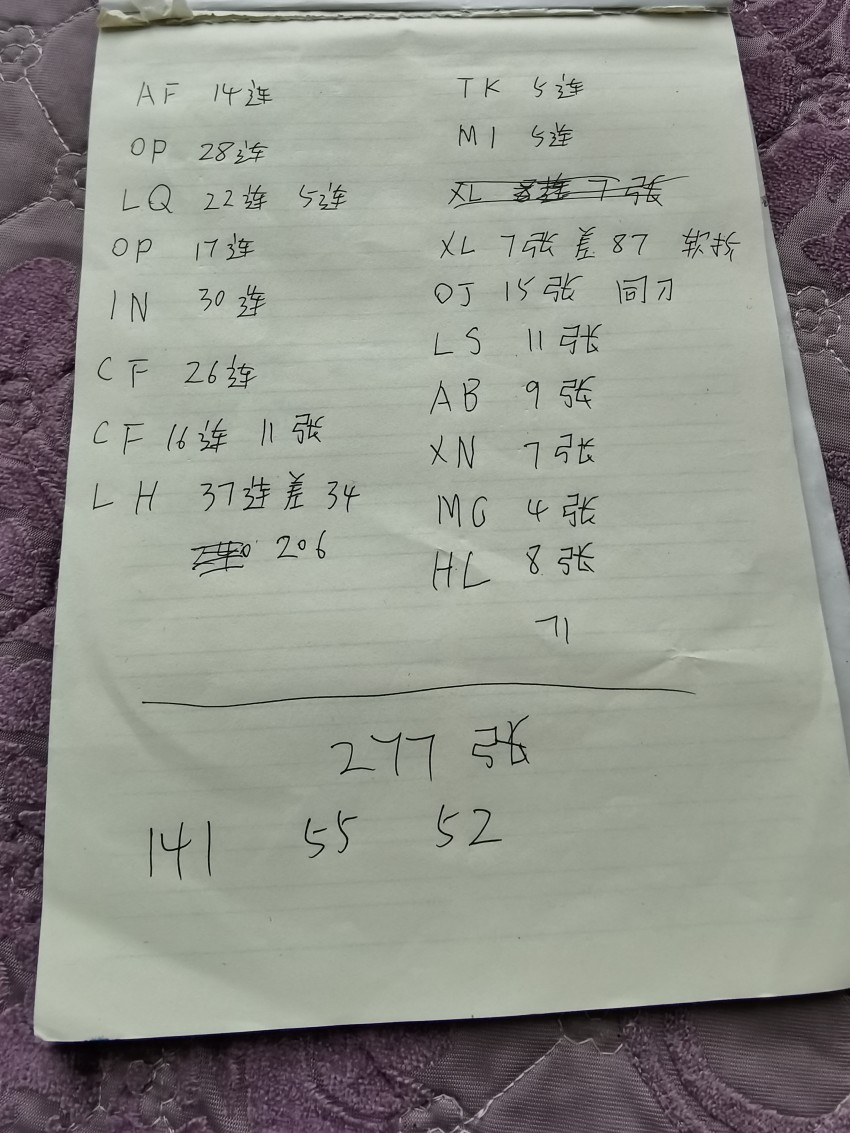 AF 14连
OP 28连
LQ 22连 5连
OP 17连
IN 30连
CF 26连
CF 16连 11张
LH 37连差 34
206
TK 5连
MI 5连
XL 7张
XL 7张 差 87 软折
OJ 15张 同刀
LS 11张
AB 9张
XN 7张
MG 4张
HL 8张
71
277 张
141 55 52